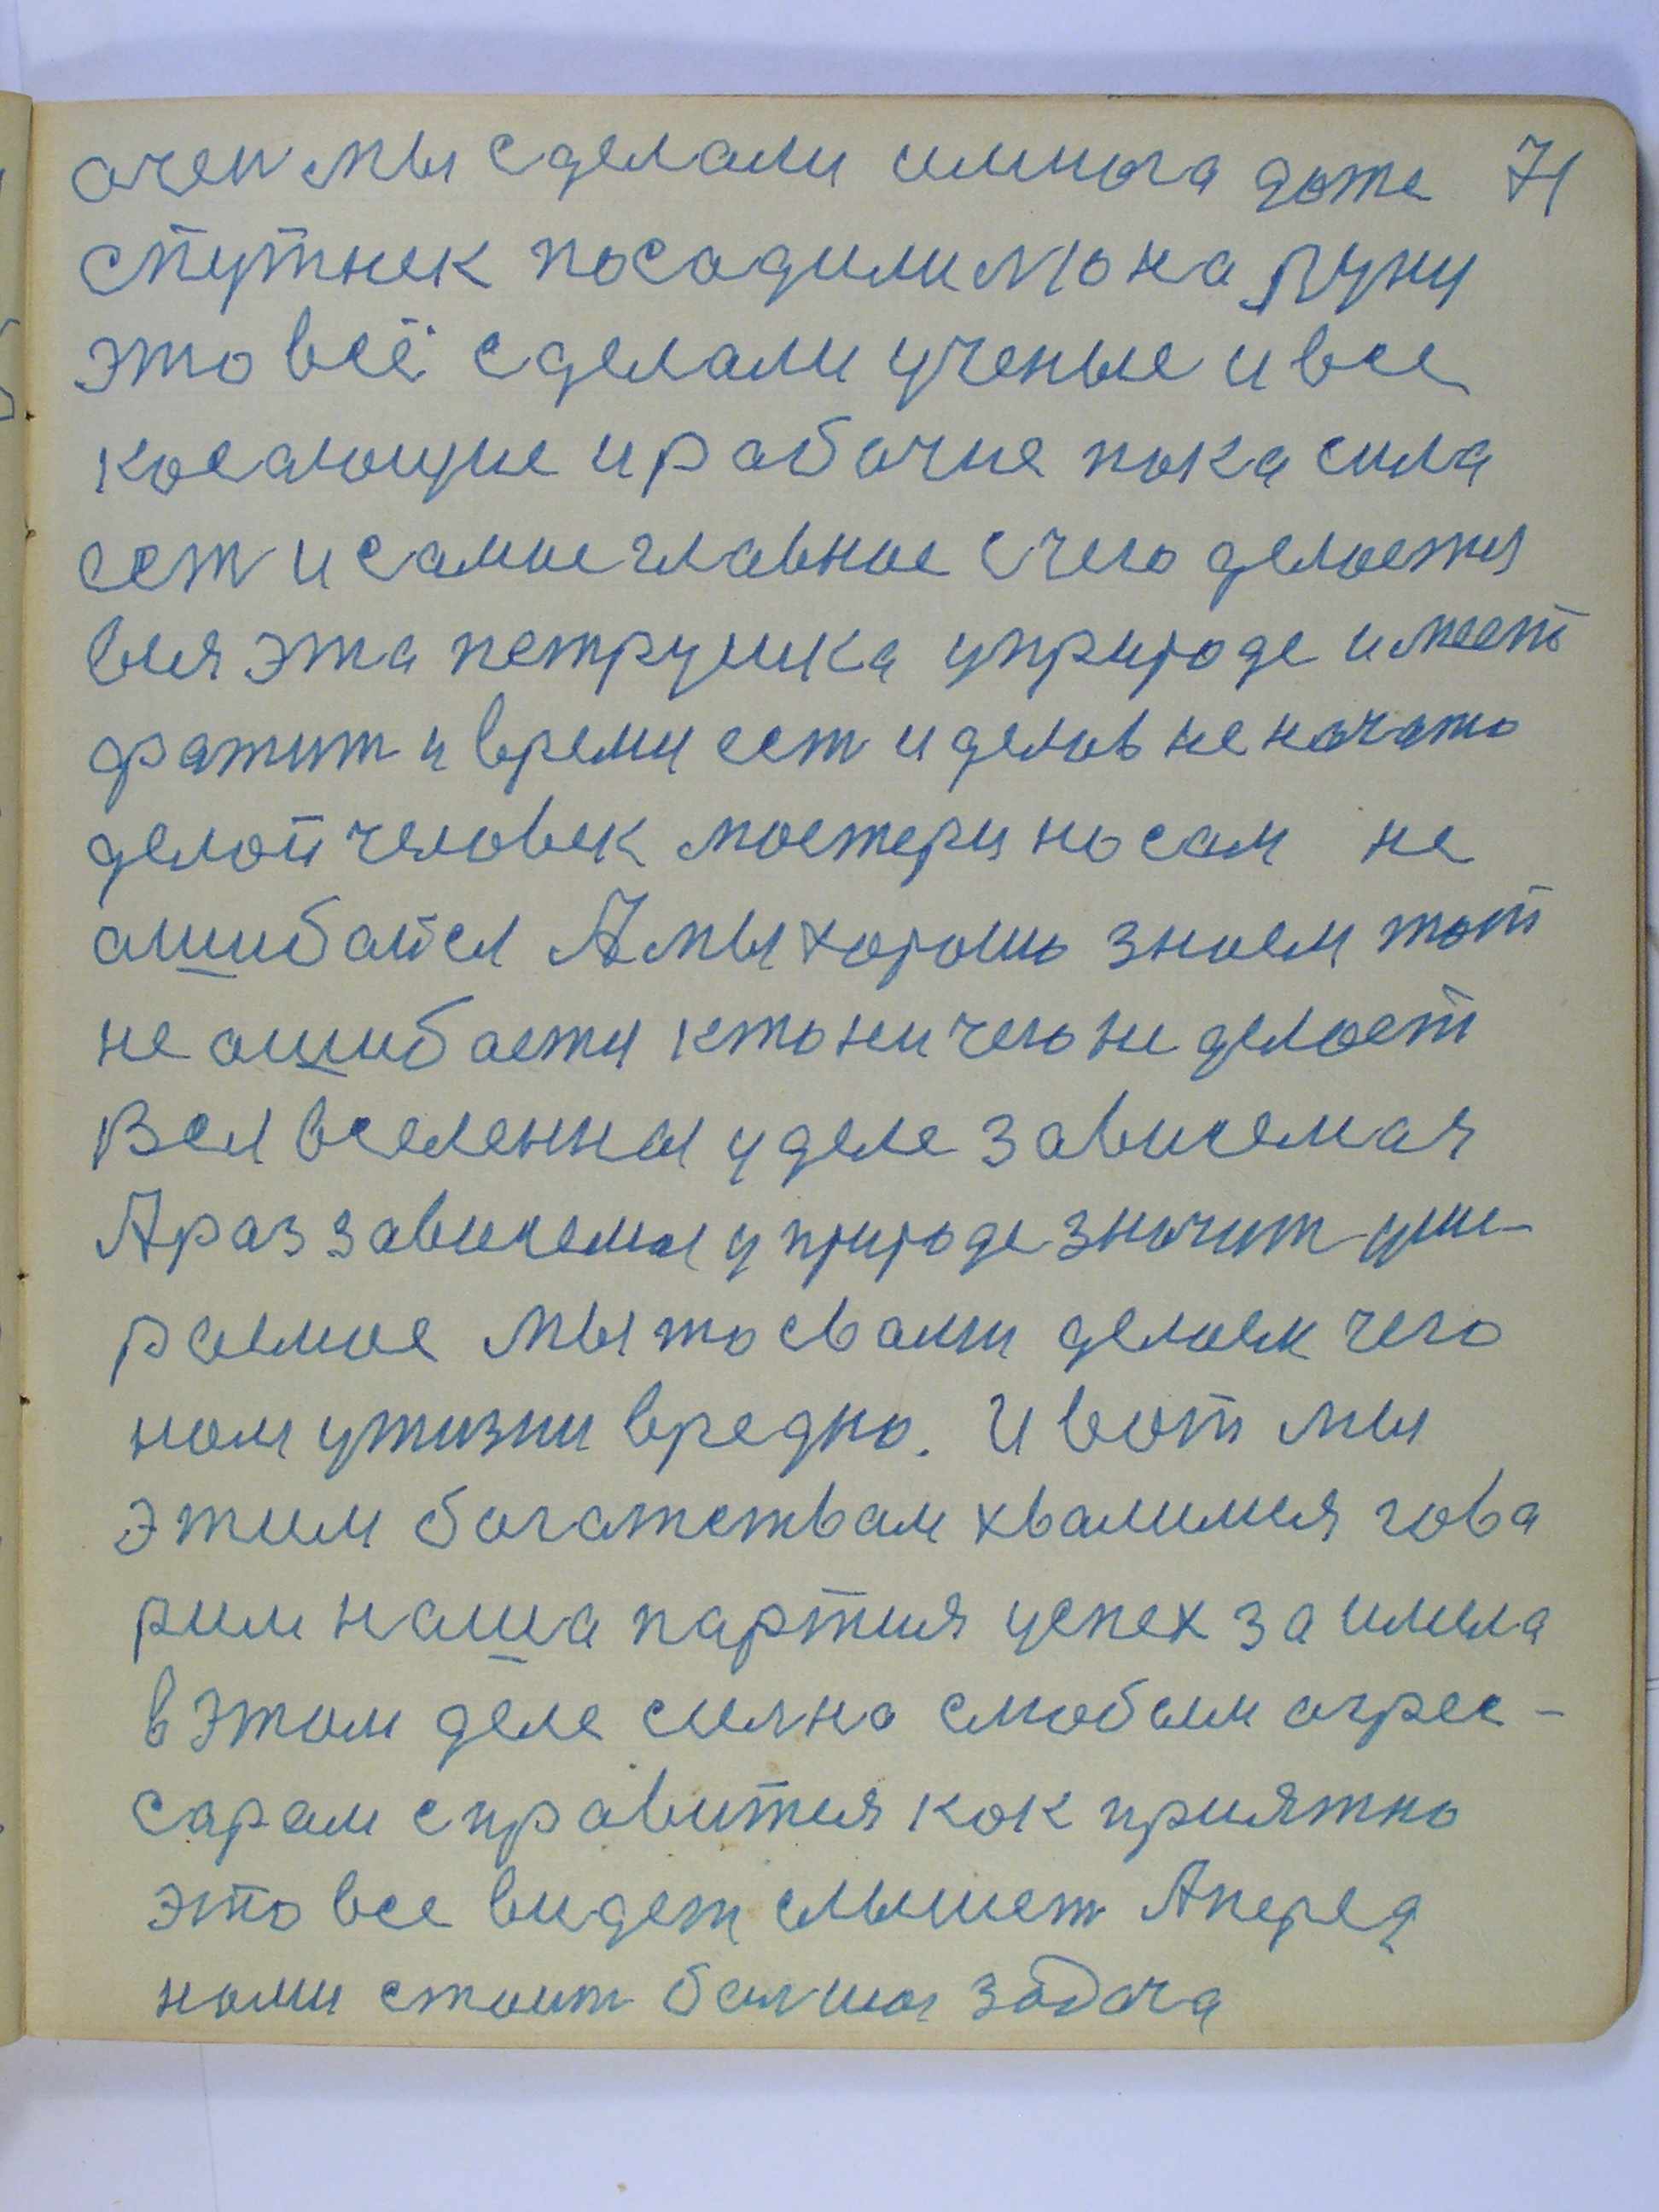 очен мы сделали имнога даже 71
спутнек посадили №10 на Луну
это всё сделали ученые и все
косающие и рабочие пока сила
сест и самое главное с чего делается
вся эта петрушка у природе и место
фатит и время ест и делов не начато
делой человек мостери но сам не
ашибайся А мы хорошо знаем тот
не ашибается кто ни чего не делает
Вся вселенная у деле зависемая
А раз зависемая у природе значит уми-
раемое мы то свами делаем чего
нам ужизни вредно. И вот мы
этим богатствам хвалимся гова
рим наша партия успех за имела
в этом деле силно слюбым агрес-
сарам справится как приятно
это все видет слышет А перед
нами стоит болшая задача